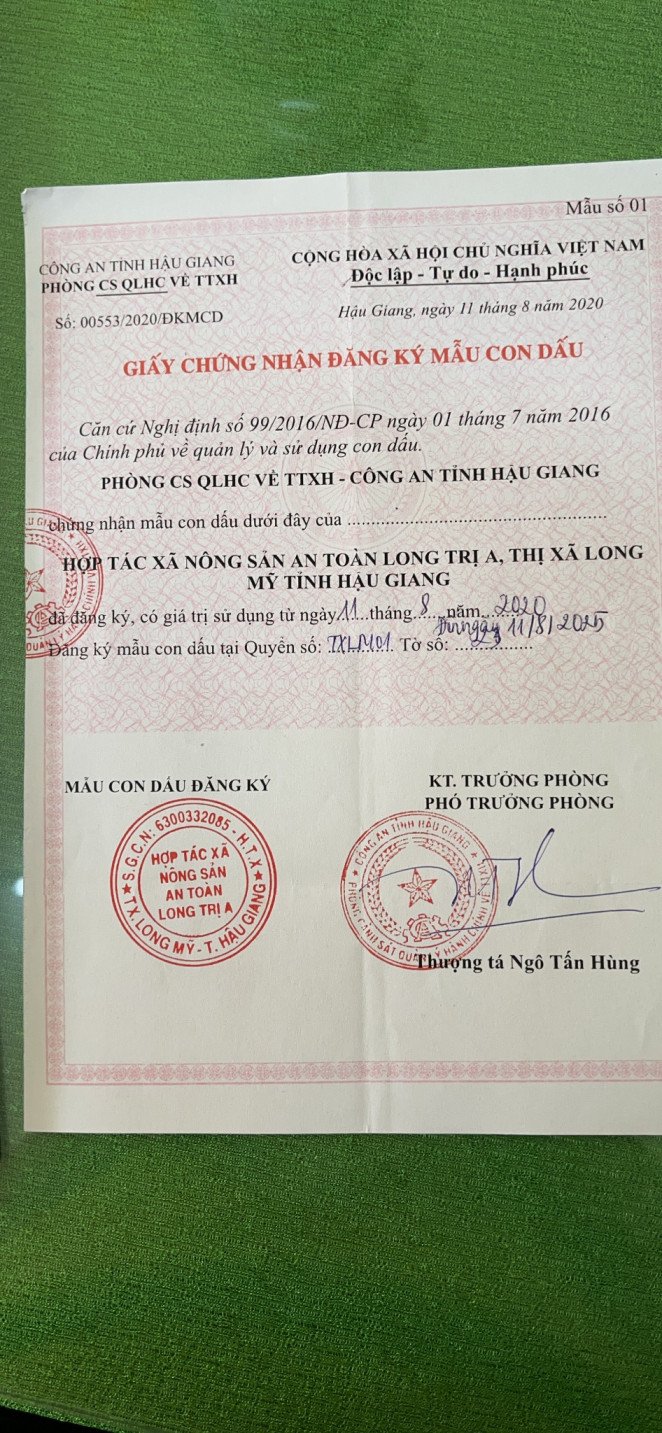 Mẫu số 01
CÔNG AN TỈNH HẬU GIANG
PHÒNG CS QLHC VỀ TTXH
Số: 00553/2020/ĐKMCD
CỘNG HÒA XÃ HỘI CHỦ NGHĨA VIỆT NAM
Độc lập - Tự do - Hạnh phúc
Hậu Giang, ngày 11 tháng 8 năm 2020
GIẤY CHỨNG NHẬN ĐĂNG KÝ MẪU CON DẤU
Căn cứ Nghị định số 99/2016/NĐ-CP ngày 01 tháng 7 năm 2016
của Chính phủ về quản lý và sử dụng con dấu.
PHÒNG CS QLHC VỀ TTXH - CÔNG AN TỈNH HẬU GIANG
chứng nhận mẫu con dấu dưới đây của
HỢP TÁC XÃ NÔNG SẢN AN TOÀN LONG TRỊ A, THỊ XÃ LONG
MỸ TỈNH HẬU GIANG
đã đăng ký, có giá trị sử dụng từ ngày 11 tháng 8 năm 2020
ngày 11/8/2025
Đăng ký mẫu con dấu tại Quyển số: TXLM01. Tờ số: 223
MẪU CON DẤU ĐĂNG KÝ
S.G.C.N: 6300332085 - H.T.X
HỢP TÁC XÃ
NÔNG SẢN
AN TOÀN
LONG TRỊ A
TX.LONG MỸ - T. HẬU GIANG
KT. TRƯỞNG PHÒNG
PHÓ TRƯỞNG PHÒNG
CÔNG AN TỈNH HẬU GIANG
PHÒNG CẢNH SÁT QUẢN LÝ HÀNH CHÍNH VỀ TTXH
Thượng tá Ngô Tấn Hùng